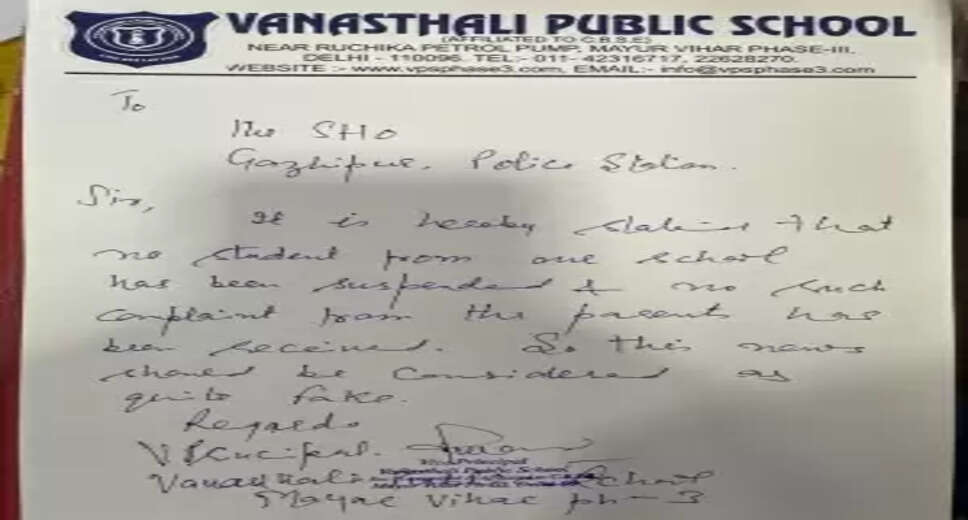 VANASTHALI PUBLIC SCHOOL
(AFFILIATED TO C.B.S.E)
NEAR RUCHIKA PETROL PUMP, MAYUR VIHAR PHASE-III.
DELHI - 110096. TEL:- 011- 42316717, 22628270.
WEBSITE :- www.vpsphase3.com, EMAIL:- info@vpsphase3.com
To
The SHO
Gazhipur, Police Station.
Sir,
It is hereby stating that
no student from our school
has been suspended & no such
complaint from the parents has
been received. So this news
should be considered as
quite fake.
Regards
V Principal.
Vanasthali School
Mayur Vihar ph-3